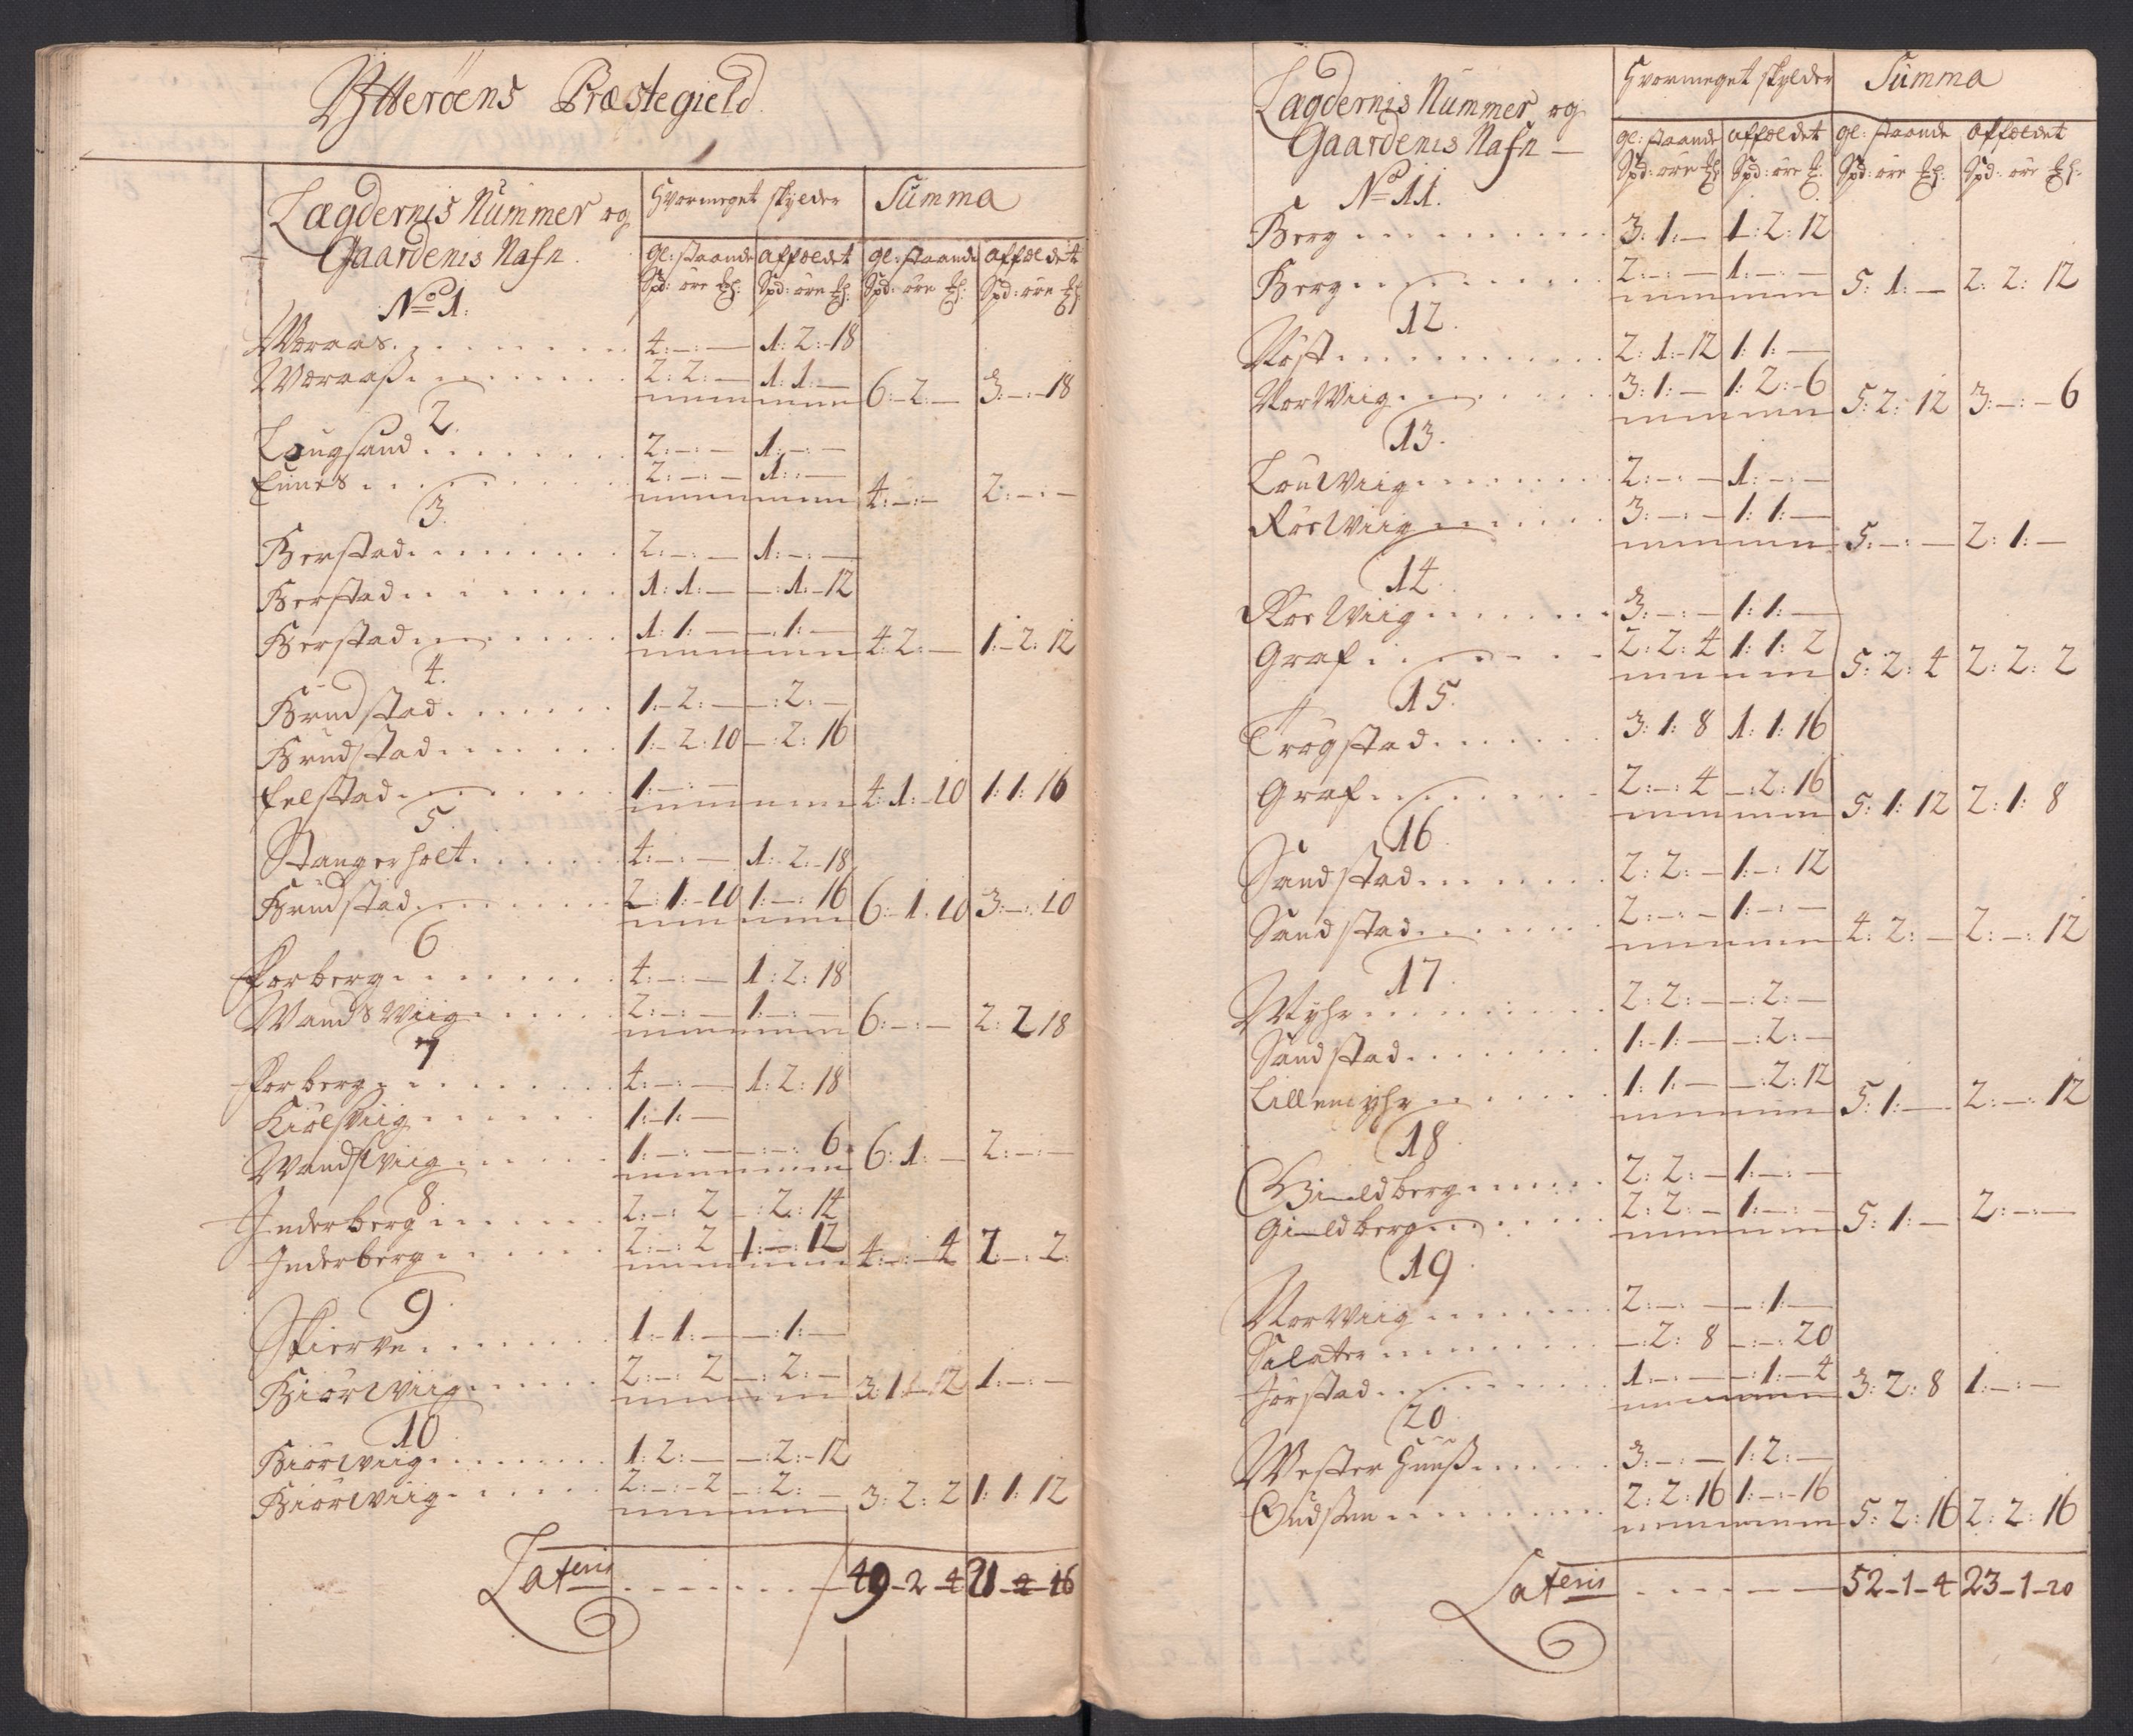 Ytterøens Præstegield
Lægdernis Nummer og
Gaardenis Nafn
Hvormeget skylder
Summa
gl: staande affældet gl: staande affældet
Spd: øre Spd: øre Spd: øre Spd: øre
No 1.
Woraas 4:-:- 1:2:-18
Woraaß 2:2:- 1:1:- 6:-2:- 3:-:-18
2
Langsand 2:-:- 1:-:-
Einnes 2:-:- 1:-:- 4:-:- 2:-:-
3.
Berstad 2:-:- 1:-:-
Berstad 1:1:- -:1:-12
Berstad 1:1:- -:1:- 4:2:- 1:-2:12
4.
Brudstad 1:-2:- -:2:-
Brudstad 1:-2:10 -:2:16
Felstad 1:-:- 4:1:-10 1:1:16
5.
Stangerholt 4:-:- 1:2:-18
Brudstad 2:1:-10 1:-:16 6:-1:10 3:-:10
6
Forberg 4:-:- 1:2:18
Wands Wiig 2:-:- 1:-:- 6:-:- 2:2 18
7
Forberg 4:-:- 1:2:18
Kiølsviig 1:-1:-
Wandswiig 1:-:- -:-:6 6:1:- 2:-:-
8.
Inderberg 2:-:2 -:2:14
Inderberg 2:-:2 1:-:12 4:-:-4 2:-:2
9.
Skierve 1:-1:- -:1:-
Biørwiig 2:-:2 -:2:- 3:1:-12 1:-:-
10
Biørwiig 1:2:- -:2:-12
Biørwiig 2:-:-2 -:2:- 3:2:2 1:1:12
Lateris 49-2-4 21-2-16
Lægdernis Nummer og
Gaardenis Nafn
Hvormeget skylder
Summa
gl: staande affældet gl: staande affældet
Spd: øre Spd: øre Spd: øre Spd: øre
No 11.
Berg 3:1:- 1:2:12
Berg 2:-:- 1:-:- 5:1:- 2:2:12
12.
Røst 2:1:-12 1:1:-
NorWiig 3:1:- 1:2:-6 5:2:12 3:-:-6
13.
LouWiig 2:-:- 1:-:-
RøsWiig 3:-:- 1:1:- 5:-:- 2:1:-
14.
RøsWiig 3:-:- 1:1:-
Graf 2:2:4 1:1:2 5:2:4 2:2:2
15.
Trøgstad 3:1:8 1:1:16
Graf 2:-:4 -:2:16 5:1:12 2:1:8
16.
Sandstad 2:2:- 1:-:12
Sandstad 2:-:- 1:-:- 4:2:- 2:-:12
17.
Myhr 2:2:- -:2:-
Sandstad 1:-1:- -:2:-
Lillemyhr 1:1:- -:2:12 5:1:- 2:-:12
18.
Gimeldberg 2:2:- 1:-:-
Gimeldberg 2:2:- 1:-:- 5:1:- 2:-:-
19.
Norwiig 2:-:- -:1:-
Salater -:2:8 -:-:20
Jørstad 1:-:- -:1:-4 3:2:8 1:-:-
20.
Wester Huuß 3:-:- 1:2:-
2:2:16 1:-:-16 5:2:16 2:2:16
Lateris 52-1-4 23-1-20